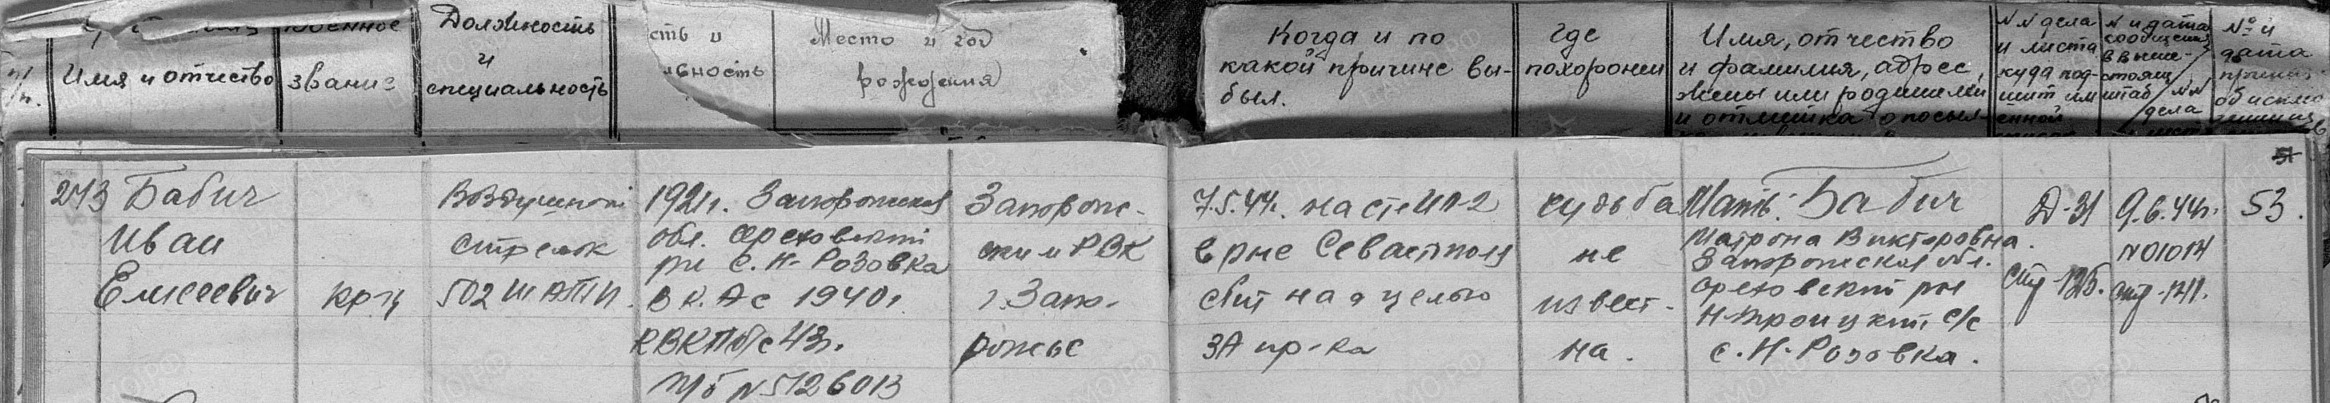 Имя и отчество
военное
звание
Должность
и
специальность
Место и год
рождения
Когда и по
какой причине вы-
был.
где
похоронен
Имя, отчество
и фамилия, адрес,
жены или родителей
и отметка о посыл-
N N дела
и листа
куда под-
шит им
енной
N и дата
сообщения
в выше-
стоящ
штаб / NN
дела
№ и
дата
51
273 Бабич
Иван
Елисеевич
кр-ц
Воздушный
стрелок
502 ШАПП.
1921г. Запорожская
обл. Ореховский
рн с. Н-Розовка
В К.А с 1940г
КВКПб с 43г.
п/б N 5126013
Запорож-
ским РВК
г. Запо-
рожье
7.5.44г. на с-те ИЛ-2
в р-не Севастполя
сбит над целью
ЗА пр-ка
судьба
не
извест-
на.
Мать: Бабич
Матрона Викторовна.
Запорожская обл.
Ореховский рн
Н-Троицкий с/с
с. Н-Розовка.
Д-31
стр-125.
9.6.44г.
N01014
стр-141.
53.